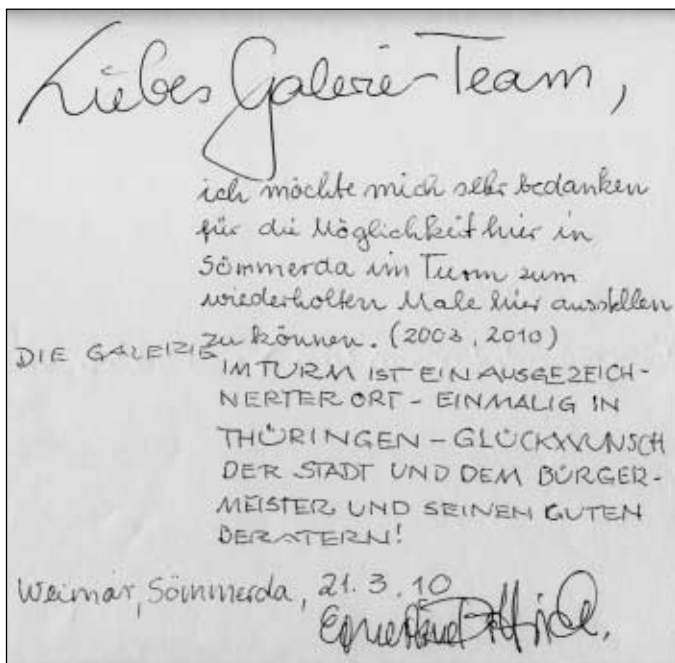 Liebes Galerie-Team,
ich möchte mich sehr bedanken
für die Möglichkeit hier in
Sömmerda im Turm zum
wiederholten Male hier ausstellen
zu können. (2003, 2010)
DIE GALERIE
IM TURM IST EIN AUSGEZEICH-
NERTER ORT - EINMALIG IN
THÜRINGEN - GLÜCKWUNSCH
DER STADT UND DEM BÜRGER-
MEISTER UND SEINEN GUTEN
BERATERN!
Weimar, Sömmerda, 21.3.10